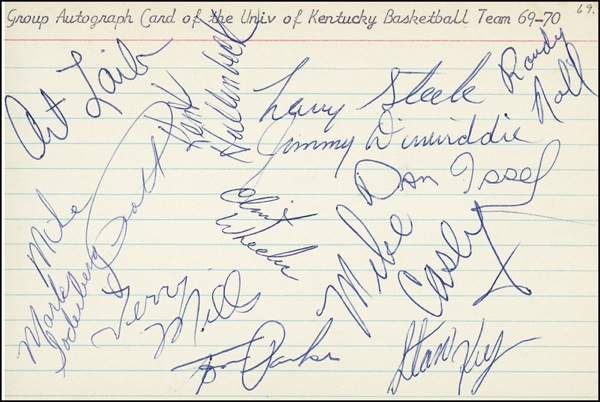 Group Autograph Card of the Univ of Kentucky Basketball Team 69-70
69.
Art Laib
Kent Hollenbeck
Larry Steele
Randy Noll
Jimmy Dinwiddie
Dan Issel
Mike Pratt
Clint Wheeler
Mike Casey
Mark Soderberg
Terry Mills
Tom Parker
Stan Key